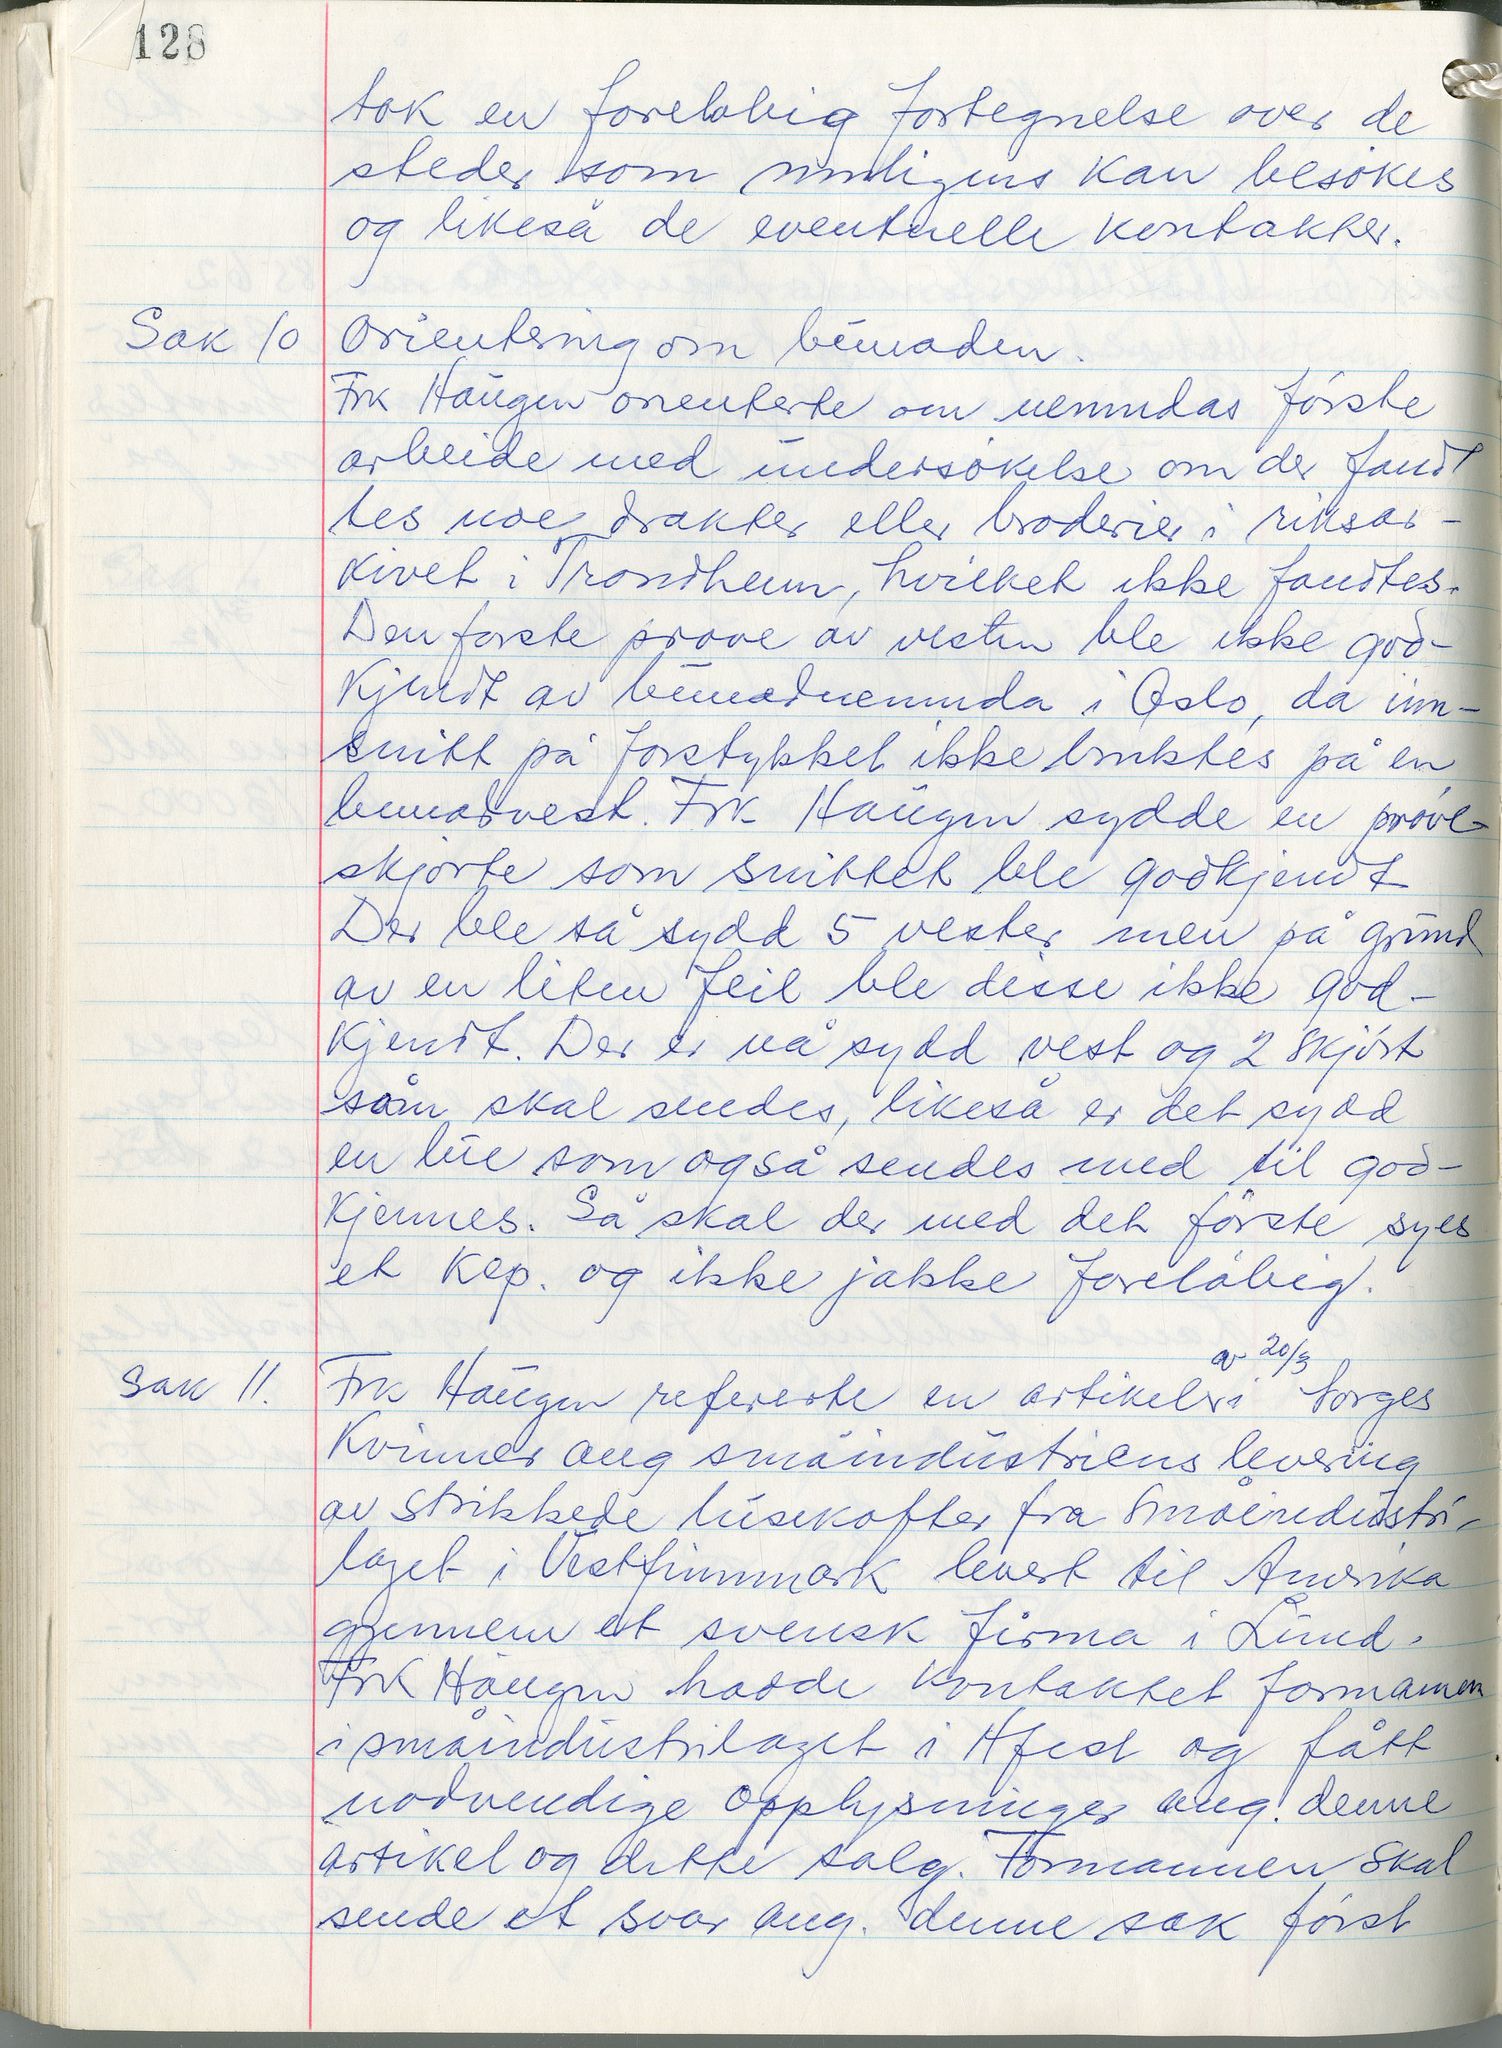 128
tok en foreløbig fortegnelse over de
steder som muligens kan besøkes
og likeså de eventuelle kontakter.
Sak 10 Orientering om bunaden.
Frk Haugen orienterte om nemndas første
arbeide med undersøkelse om der fandt
tes noe drakter eller broderier i riksar-
kivet i Trondheim, hvilket ikke fandtes.
Den første prøve av vesten ble ikke god-
kjendt av bunadnemnda i Oslo, da inn-
snitt på forstykket ikke bruktes på en
bunadvest. Frk Haugen sydde en prøve
skjorte som snittet ble godkjendt
Der ble så sydd 5 vester men på grund
av en liten feil ble disse ikke god-
kjendt. Der er nå sydd vest og 2 skjørt
som skal sendes, likeså er det sydd
en lue som også sendes med til god-
kjennes. Så skal der med det første syes
et kep. og ikke jakke foreløbig.
av 20/3
Sak 11. Frk Haugen refererte en artikel i Norges
Kvinner ang småindustriens levering
av strikkede lusekofter fra Småindustri-
laget i Vestfinnmark levert til Amerika
gjennem et svensk firma i Lund.
Frk Haugen hadde kontaktet formannen
i småindustrilaget i Hfest og fått
nødvendige opplysninger ang. denne
artikel og dette salg. Formannen skal
sende et svar ang. denne sak først